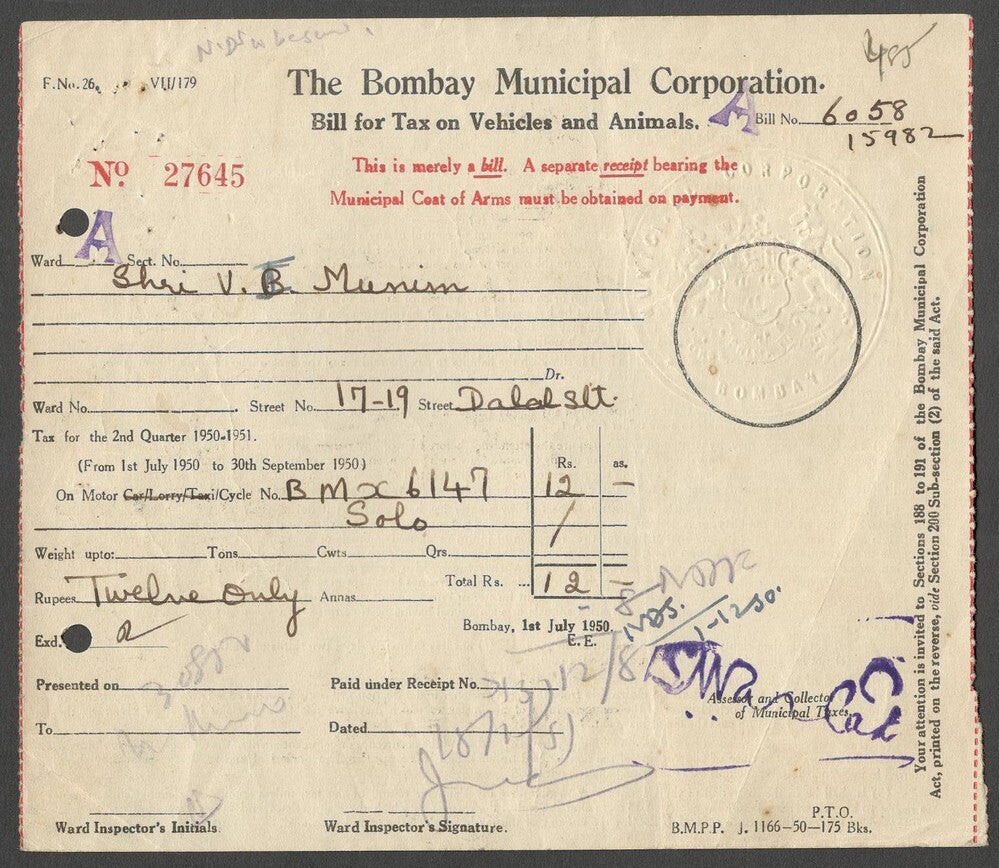 F. No. 26. VII/179
The Bombay Municipal Corporation.
Bill for Tax on Vehicles and Animals.
A
Bill No. 6058
15982
485
No 27645
This is merely a bill. A separate receipt bearing the
Municipal Coat of Arms must be obtained on payment.
Ward A Sect. No.
Shri V. B. Munim
Dr.
Ward No. Street No. 17-19 Street Dalal Stt.
Tax for the 2nd Quarter 1950-1951.
(From 1st July 1950 to 30th September 1950)
Rs. as.
On Motor Car/Lorry/Taxi/Cycle No. BMX 6147 12 –
Solo /
Weight upto: Tons Cwts Qrs.
Total Rs. ... 12 –
Rupees Twelve Only Annas
Bombay, 1st July 1950.
E. E.
1-12-50.
Exd.
Presented on
Paid under Receipt No.
Assessor and Collector
of Municipal Taxes.
To
Dated
Ward Inspector's Initials.
Ward Inspector's Signature.
P.T.O.
B.M.P.P. J. 1166–50–175 Bks.
Your attention is invited to Sections 188 to 191 of the Bombay Municipal Corporation
Act, printed on the reverse, vide Section 200 Sub-section (2) of the said Act.
CORPORATION
BOMBAY